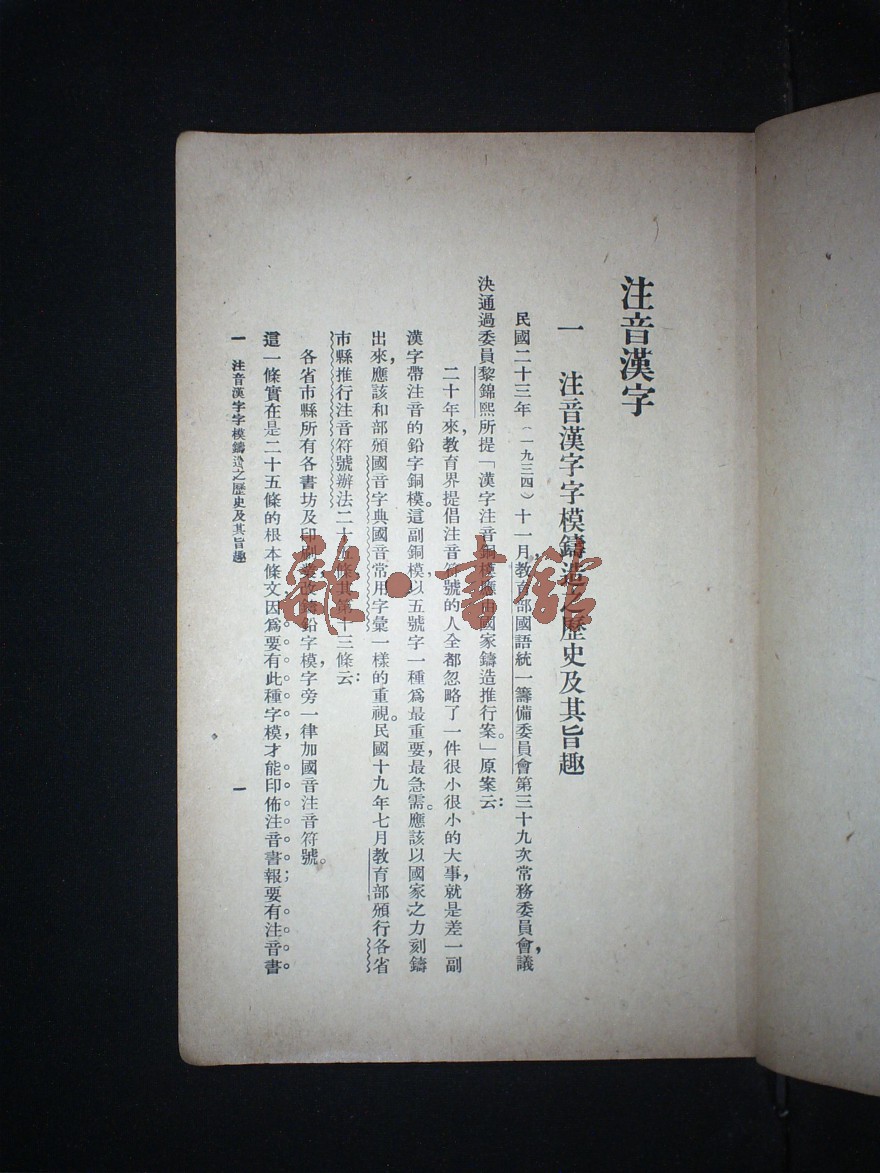 注音漢字
一　注音漢字字模鑄造之歷史及其旨趣
民國二十三年（一九三四）十一月，教育部國語統一籌備委員會第三十九次常務委員會，議
決通過委員黎錦熙所提「漢字注音銅模應由國家鑄造推行案」。原案云：
二十年來，教育界提倡注音符號的人全都忽略了一件很小很小的大事，就是差一副
漢字帶注音的鉛字銅模。這副銅模，以五號字一種爲最重要，最急需。應該以國家之力刻鑄
出來，應該和部頒國音字典國音常用字彙一樣的重視。民國十九年七月教育部頒行各省
市縣推行注音符號辦法二十五條，其第十三條云：
各省市縣所有各書坊及印刷業，改鑄鉛字模，字旁一律加國音注音符號。
這一條實在是二十五條的根本條文，因爲要有此種字模，才能印佈注音書報；要有注音書
一　注音漢字字模鑄造之歷史及其旨趣
一
雜·書館